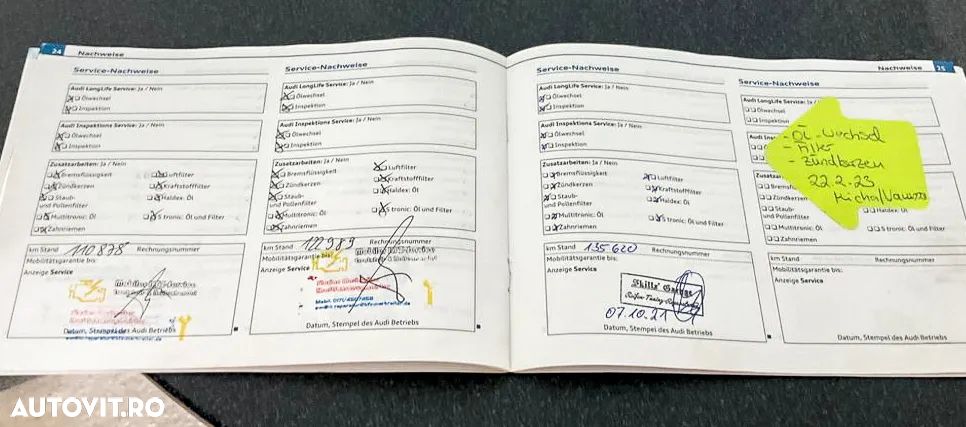 24 Nachweise
Service-Nachweise
Audi LongLife Service: Ja / Nein
Ölwechsel
Inspektion
Audi Inspektions Service: Ja / Nein
Ölwechsel
Inspektion
Zusatzarbeiten: Ja / Nein
Bremsflüssigkeit
Luftfilter
Zündkerzen
Kraftstofffilter
Staub-
und Pollenfilter
Haldex: Öl
Multitronic: Öl
S tronic: Öl und Filter
Zahnriemen
km Stand 110878 Rechnungsnummer
Mobilitätsgarantie bis:
Anzeige Service
Datum, Stempel des Audi Betriebs
Service-Nachweise
Audi LongLife Service: Ja / Nein
Ölwechsel
Inspektion
Audi Inspektions Service: Ja / Nein
Ölwechsel
Inspektion
Zusatzarbeiten: Ja / Nein
Bremsflüssigkeit
Luftfilter
Zündkerzen
Kraftstofffilter
Staub-
und Pollenfilter
Haldex: Öl
Multitronic: Öl
S tronic: Öl und Filter
Zahnriemen
km Stand 122989 Rechnungsnummer
Mobilitätsgarantie bis:
Anzeige Service
Datum, Stempel des Audi Betriebs
Service-Nachweise
Audi LongLife Service: Ja / Nein
Ölwechsel
Inspektion
Audi Inspektions Service: Ja / Nein
Ölwechsel
Inspektion
Zusatzarbeiten: Ja / Nein
Bremsflüssigkeit
Luftfilter
Zündkerzen
Kraftstofffilter
Staub-
und Pollenfilter
Haldex: Öl
Multitronic: Öl
S tronic: Öl und Filter
Zahnriemen
km Stand 135620 Rechnungsnummer
Mobilitätsgarantie bis:
Anzeige Service
07.10.21
Datum, Stempel des Audi Betriebs
Nachweise 25
Service-Nachweise
Audi LongLife Service: Ja
Ölwechsel
Inspektion
- Öl-Wechsel
- Filter
- Zündkerzen
22.2.23
Haldex: Öl
Multitronic: Öl
S tronic: Öl und Filter
Zahnriemen
km Stand Rechnungsnummer
Mobilitätsgarantie bis:
Anzeige Service
Datum, Stempel des Audi Betriebs
AUTOVIT.RO